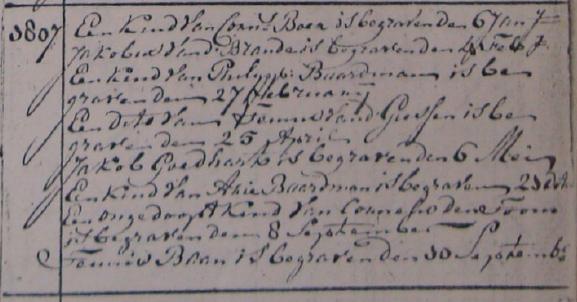 1807 Een Kind van Corns. Baan is begraven den 6 Jan
Jakobus vand Brande is begraven den 4 Feb
Een kind van Philipp: Baardman is be
graven den 27 februarij
Een dito van Teunis vand Giessen is be
graven den 25 April
Jakob Goedhart is begraven den 6 Meij
Een kind van Arie Baardman is begraven 23 dito
Een ongedoopt kind van Cornelis den Toom
is begraven den 8 September
Teunis Baan is begraven den 30 Septemb